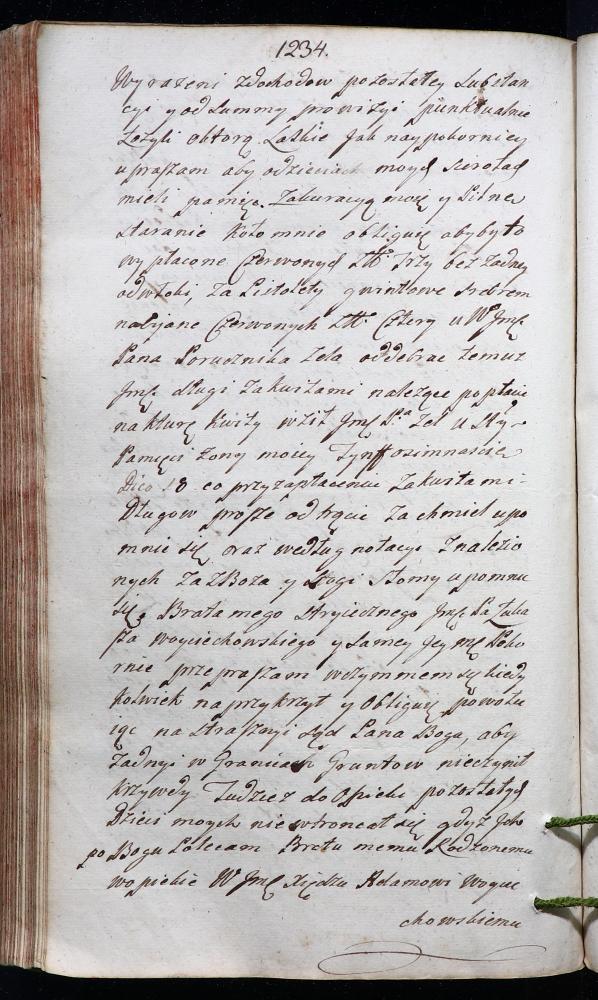 1234.
Wyrażeni z dochodow pozostałey Substan
cyi y od Summy prowizyi punktualnie
łożyli obtorą Laskie Jak naypokorniey
upraszam aby o dzieciach moych Sierotach
mieli pamięć. Za kuracyą moię y Pilne
staranie koło mnie obliguię aby było
wypłacone Czerwonych Złł. trzy bez żadney
odwłoki, za Pistolety gwintowe srebrem
nabijane Czerwonych Złł. Cztery u W Jmć
Pana Porucznika Zela oddebrać temuż
Jmć. długi za kwitami należące popłacić
na kturę kwity wził Jmć Pa Zel u Sty.
Pamięci żony moiey Tynff osimnaście
Dico 18 co przy zapłaceniu za kwitami
Długow proszę odtrącić za chmiel upo
mnieć się oraz według notacyi Znalezio
nych za Zboża y stogi słomy upomnić
się, Brata mego stryiecznego Jmć Pa Łuka
sza woyciechowskiego y Samey Jey mć Poko
rnie przepraszam w czymmem się kiedy
kolwiek naprzykrzył y Obliguię powołu
iąc na straszny sąd Pana Boga, aby
żadnyi w Granicach Gruntow nieczynił
krzywdy Tudziez do Opieki pozostałych
Dzieci moych niewtroncał się gdyż Jch
po Bogu Polecam Bratu memu Rodzonemu
w opiekie W Jmć Xiędzu Adamowi woycie
chowskiemu